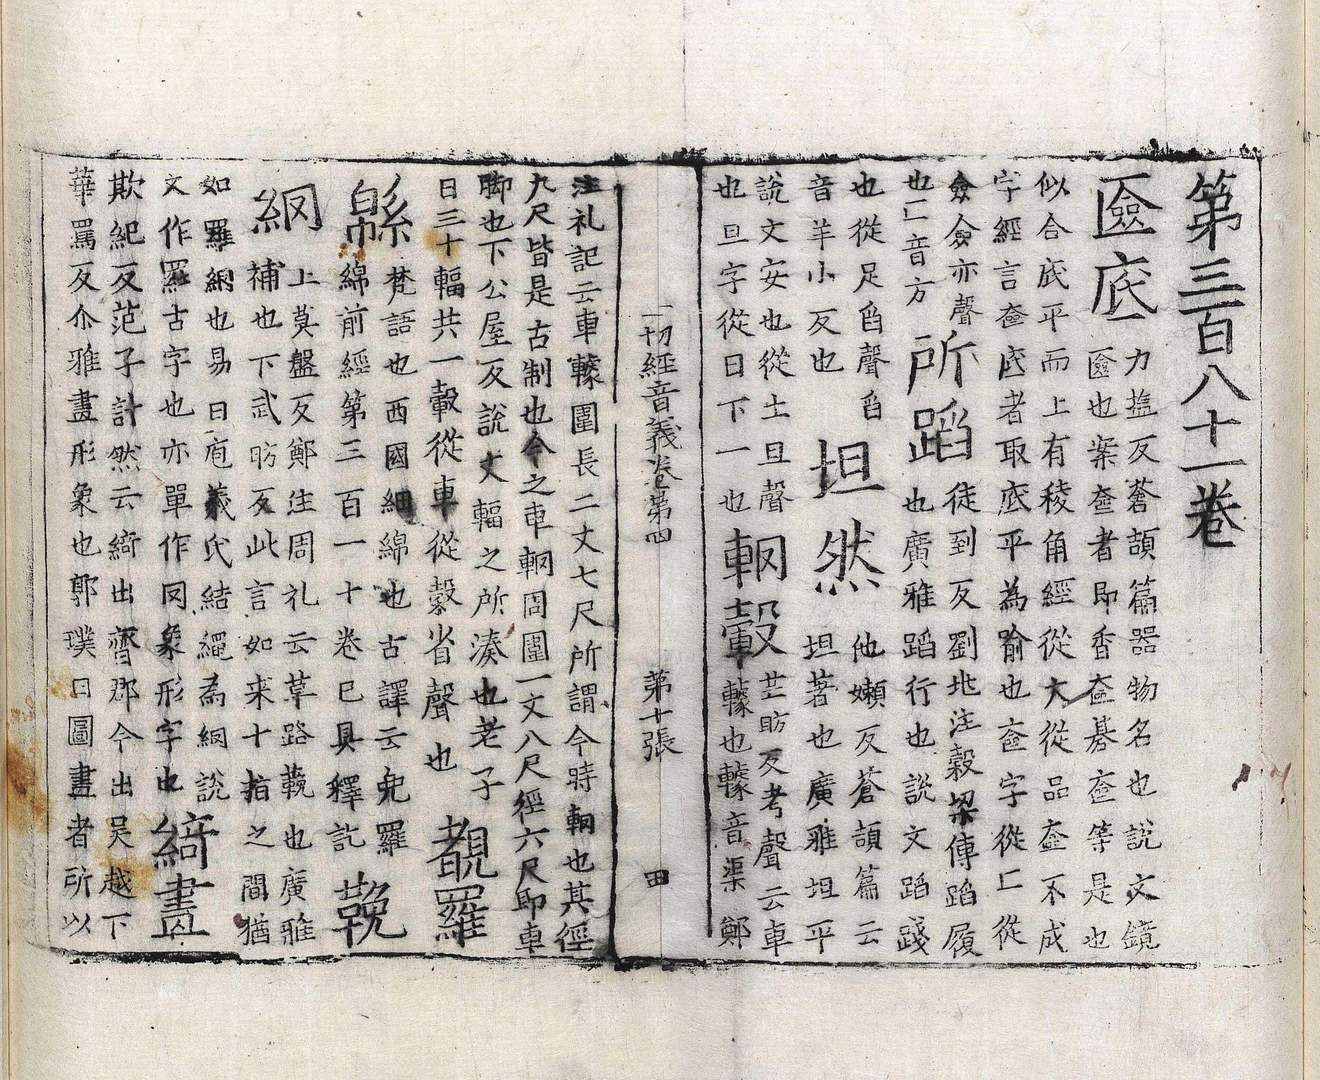 第三百八十一卷
匳底
力塩反蒼頡篇器物名也說文鏡
匳也案奩者即香奩碁奩等是也
似合底平而上有稜角經從大從品奩不成
字經言奩底者取底平為喻也奩字從匚從
僉僉亦聲
也匚音方
所蹈
徒到反劉兆注穀梁傳蹈履
也廣雅蹈行也說文蹈踐
也從足舀聲舀
音羊小反也
坦然
他嬾反蒼頡篇云
坦著也廣雅坦平
說文安也從土旦聲
也旦字從日下一也
輞轂
芒昉反考聲云車
也音渠鄭
一切經音義卷第四 第十張 田
注礼記云車圍長二丈七尺所謂今時輞也其徑
九尺皆是古制也今之車輞周圍一丈八尺徑六尺即車
脚也下公屋反說文輻之所湊也老子
曰三十輻共一轂從車從省聲也
覩羅
緜
梵語也西國細綿也古譯云兜羅
綿前經第三百一十卷已具釋訖
鞔
網
上莫盤反鄭注周礼云革路鞔也廣雅
補也下武昉反此言如來十指之間猶
如羅網也易曰庖羲氏結繩為網說
文作羅古字也亦單作罔象形字也
綺畫
欺紀反范子計然云綺出齊郡今出吳越下
華罵反尒雅畫形象也郭璞曰圖畫者所以